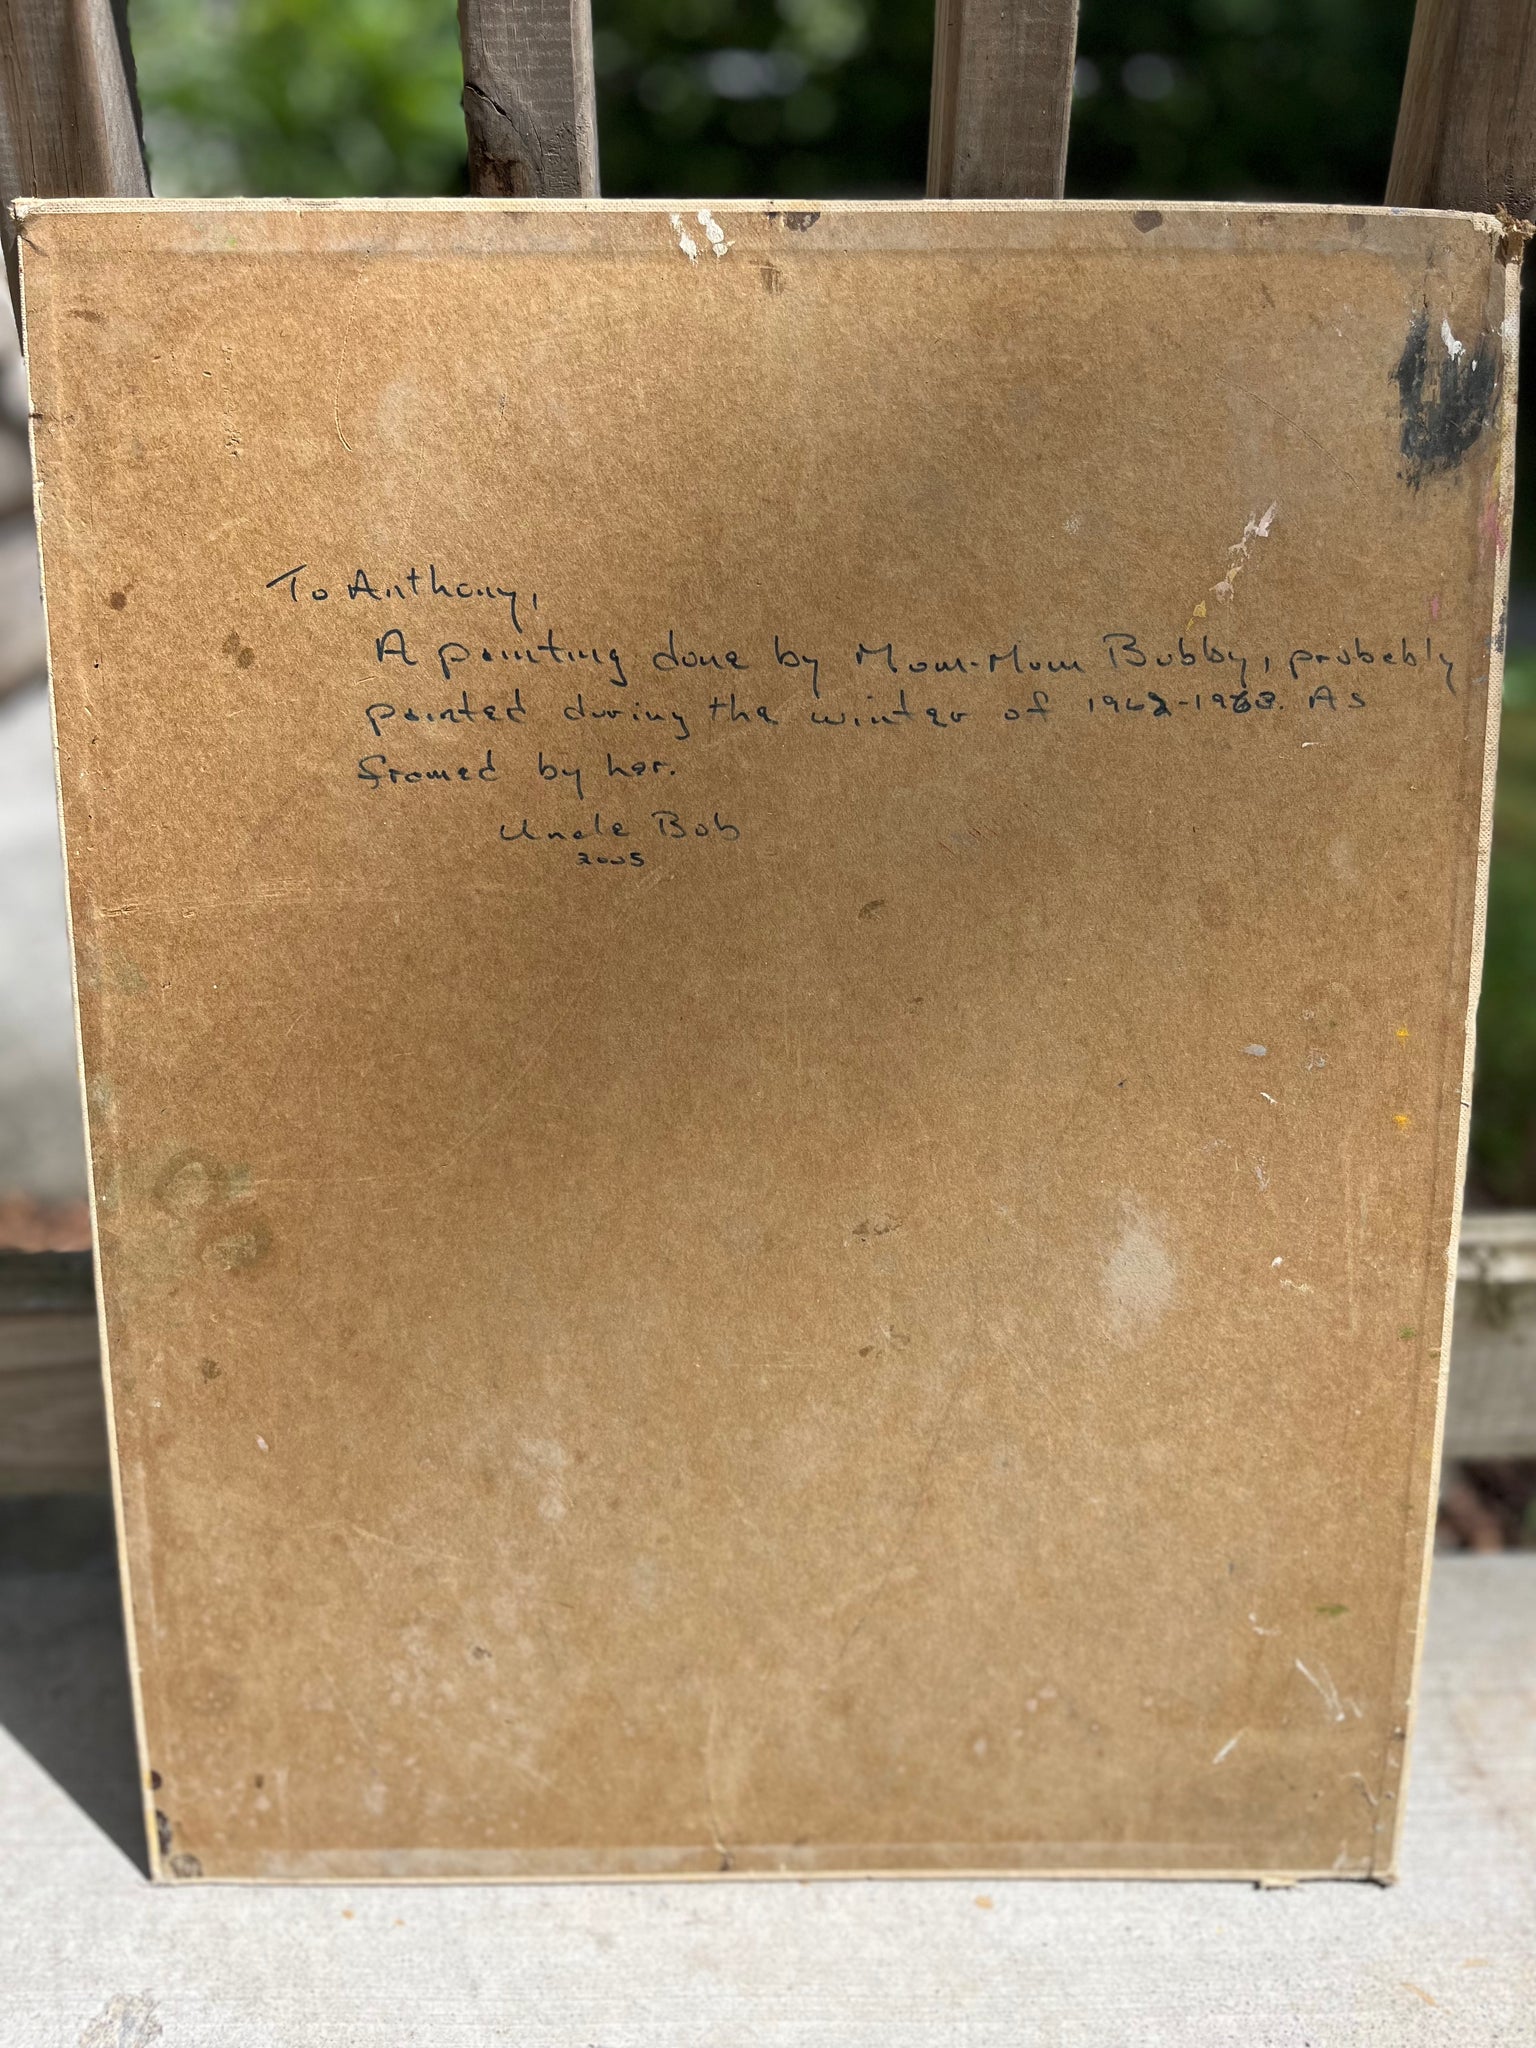 To Anthony,
A painting done by Mom-Mom Bubby, probably
painted during the winter of 1962-1963. As
framed by her.
Uncle Bob
2005